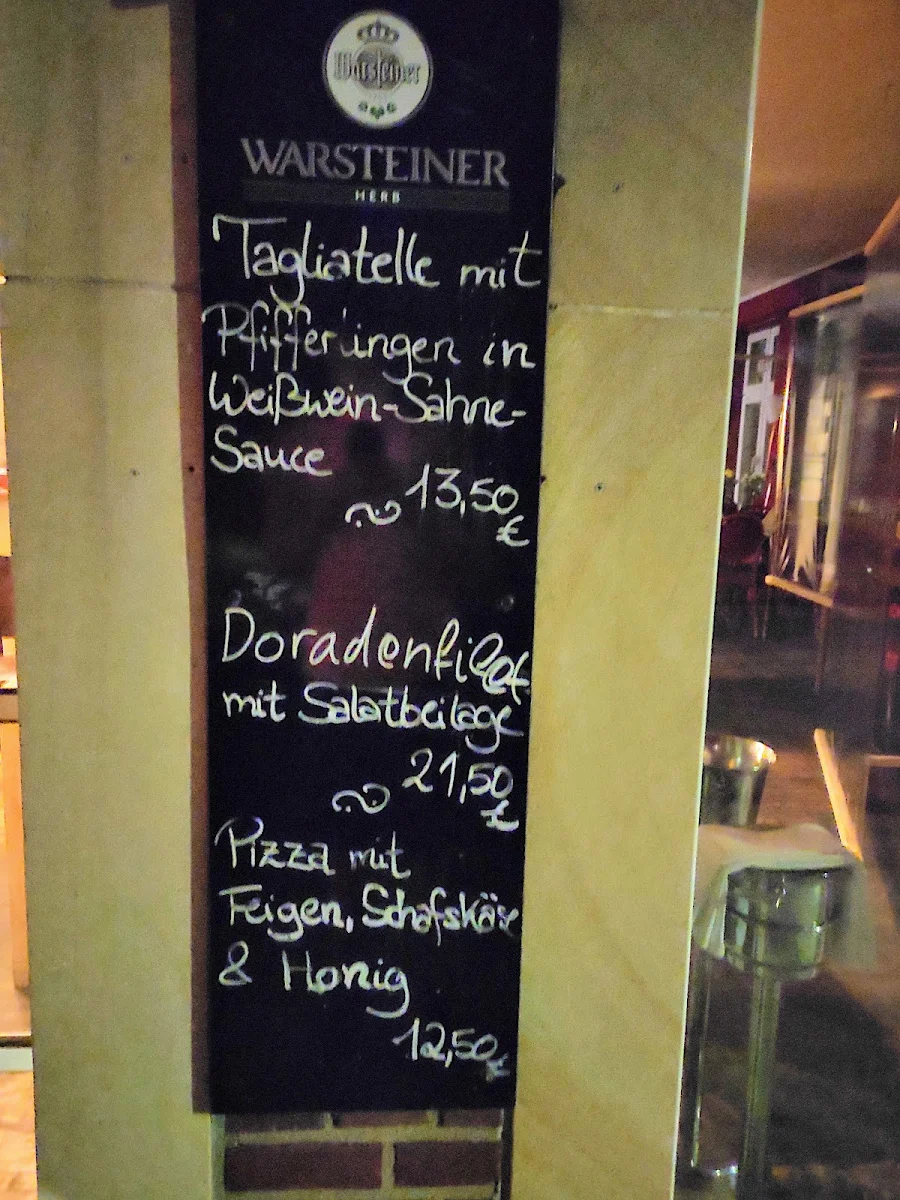 Warsteiner
WARSTEINER
HERB
Tagliatelle mit
Pfifferlingen in
Weißwein-Sahne-
Sauce
13,50
€
Doradenfilet
mit Salatbeilage
21,50
€
Pizza mit
Feigen, Schafskäse
& Honig
12,50€